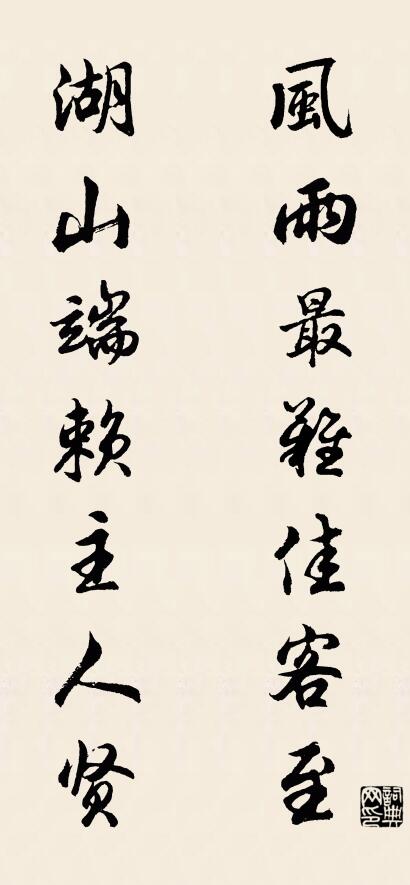 風雨最難佳客至
湖山端赖主人贤
詞典网印